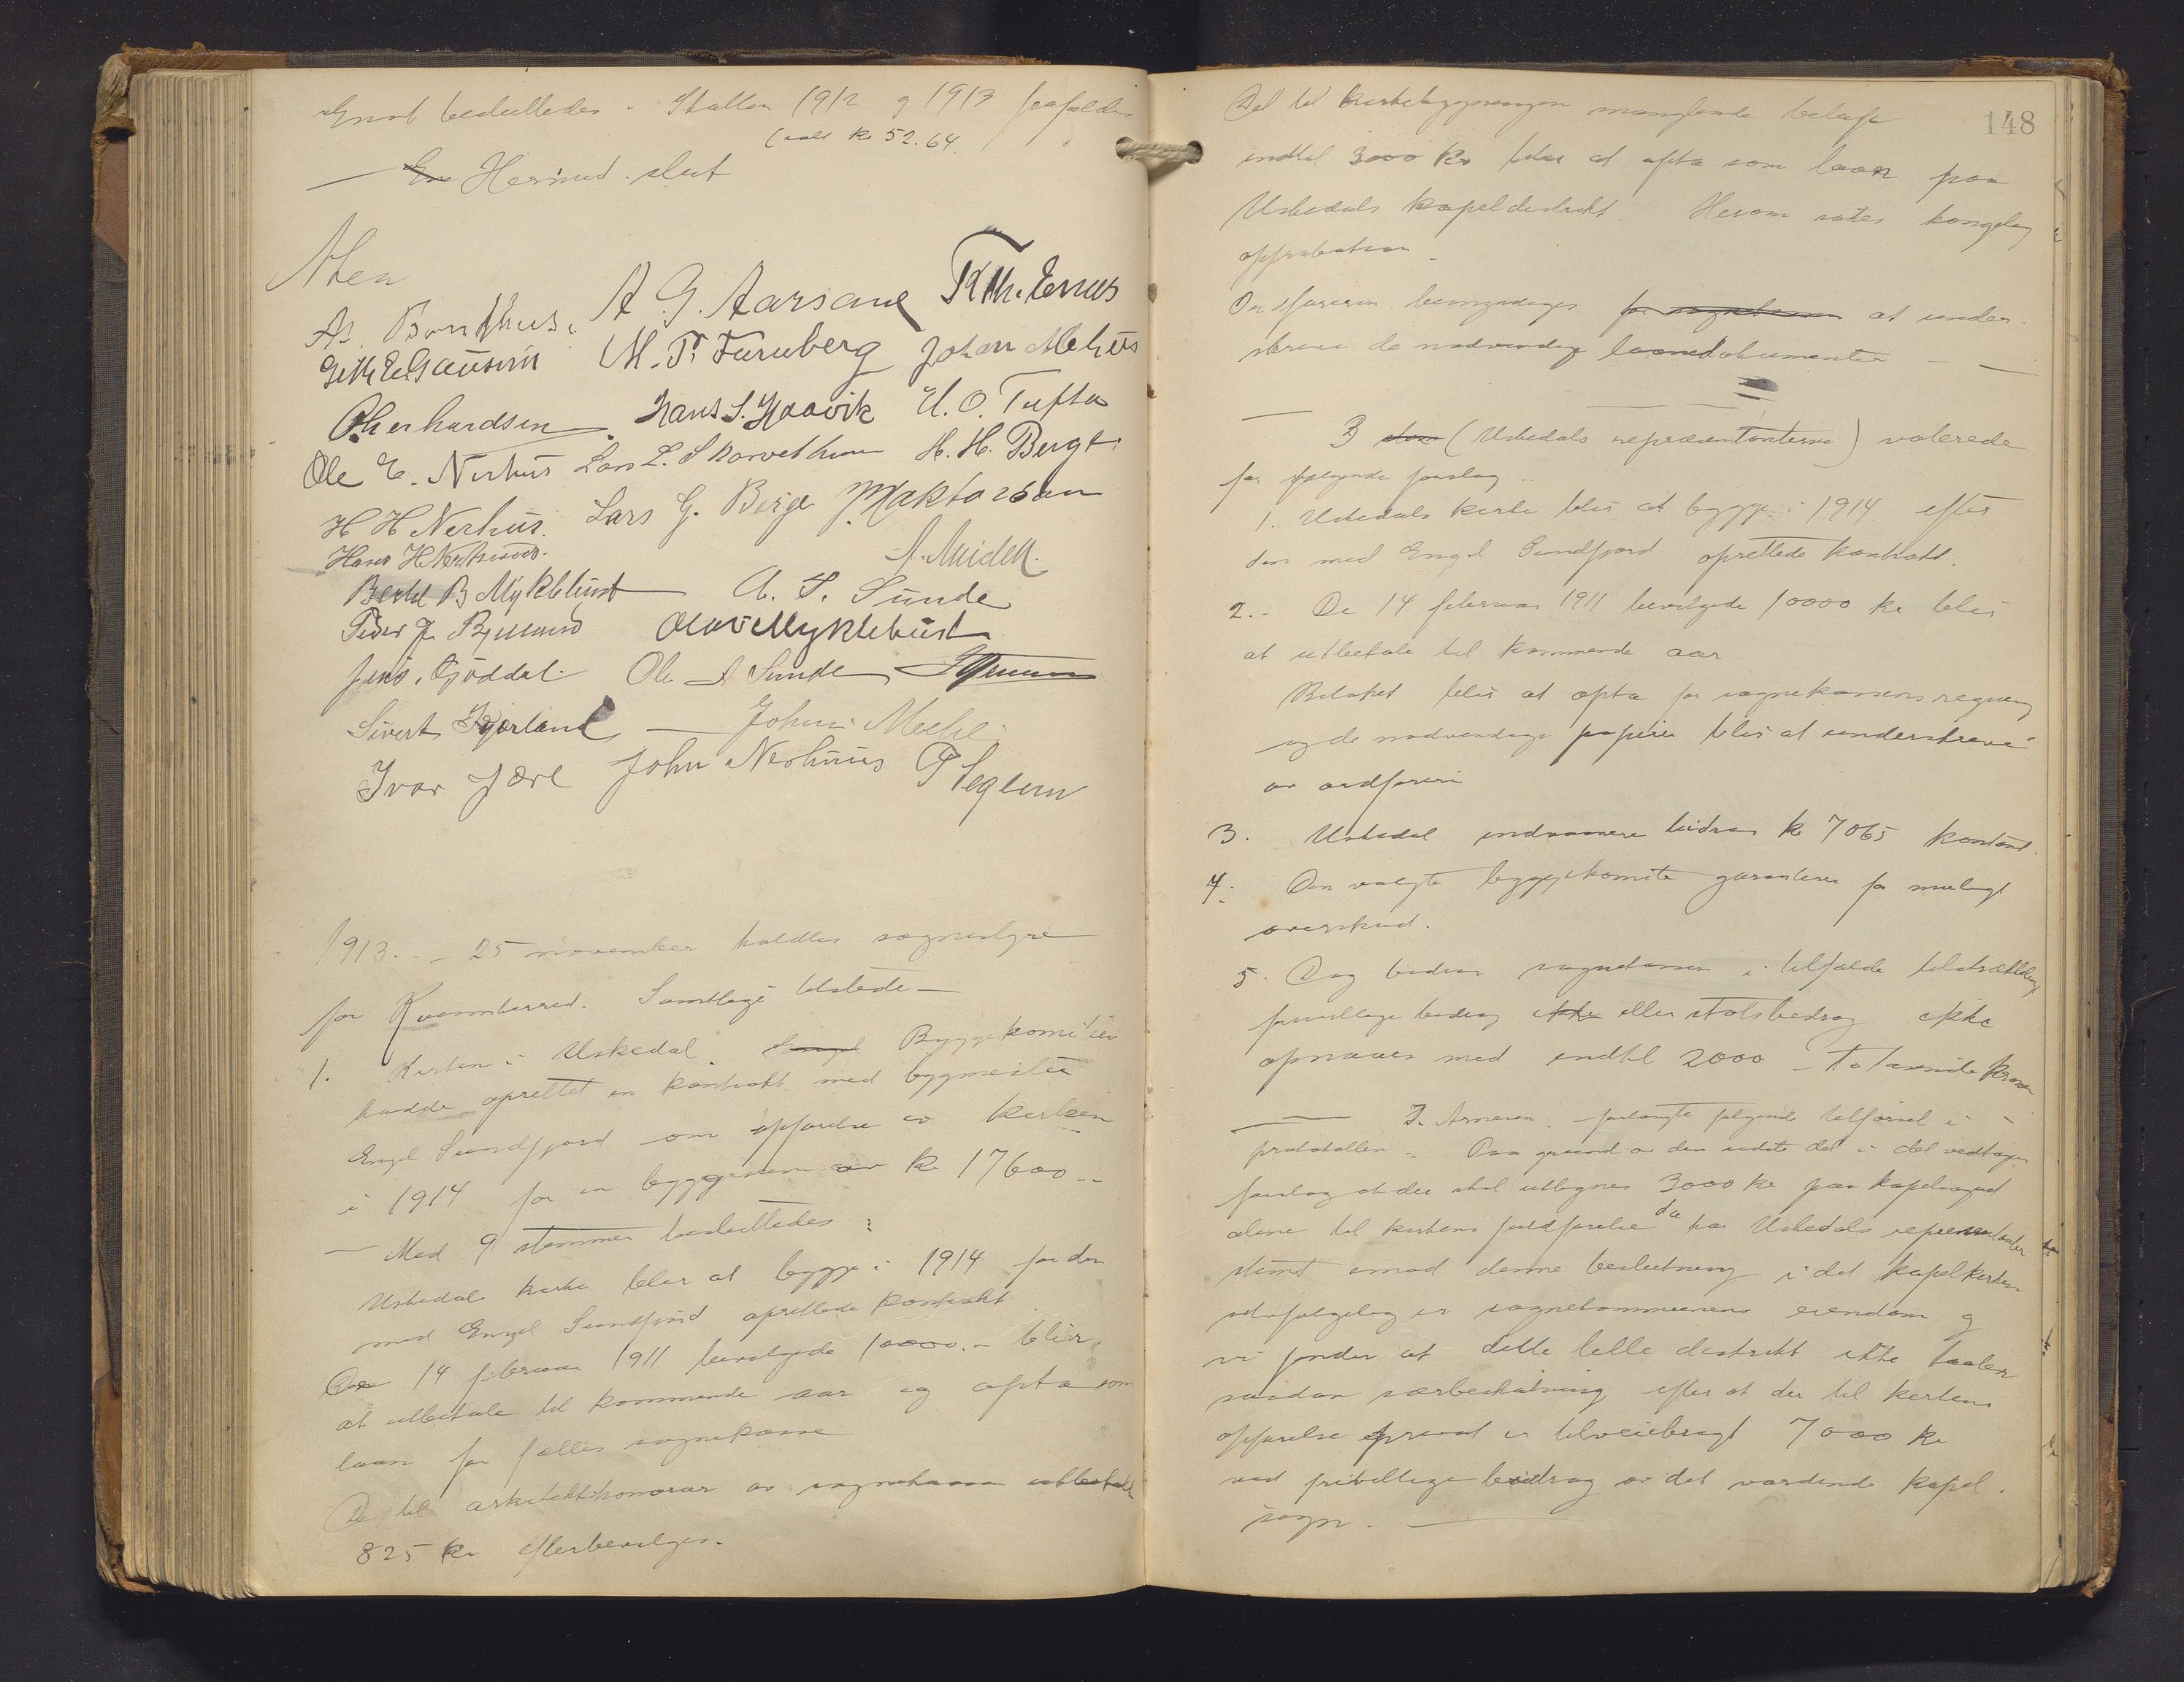 Enst besluttedes. Skatten 1912 g 1913 frafaldes
(ialt kr 52.64.
— En Hermed slut
Aken
As. Bondhus. A. G. Aarsand K. Th. Ernes
G. Th. E. Gausvin M. T. Furuberg Johan Mehus
O. Gerhardsen Hans S. Haavik H. O. Tufta
Ole E. Nerhus Lars L. Skorvethun H. H. Berge
H H Nerhus. Lars G. Berge
Hans H Nerhuus. A. Midell
Bertel B Myklebust A. S. Sunde
Peder J. Olav Myklebust
Jens. Gjøddal Ole A Sunde
Sivert Kjærland — Johan Mehl
Ivar Jære John Nerhuus P Seglem
1913. - 25 november holdtes sognestyre
for Kvinnherred. Samtlige tilstede —
1. Kirken i Uskedal. Byggekomiteen
hadde oprettet en kontrakt med bygmester
Engel Sundfjord om opførelse av kirken
i 1914 for en byggesum av kr 17600 --
— Med 9 stemmer besluttedes:
Uskedals kirke blir at bygge i 1914 for den
med Engel Sundfjord oprettede kontrakt.
De 14 februar 1911 bevilgede 10000.- blir
at utbetale til kommende aar og opta som
laan for fælles sognekasse
De til arkitekthonorar av sognekassen utbetalt
825 kr efterbevilges.
148
Det til kirkebygningen manglende beløp
indtil 3000 kr blir at opta som laan paa
Uskedals kapeldistrikt. Herom søkes kongelig
approbation.
Ordføreren bemyndiges for sognekassen at under
skrive de nødvendige laanedokumenter —
— 3 (Uskedals repræsentanterne) voterede
for følgende forslag ..
1. Uskedals kirke blir at bygge i 1914 efter
den med Engel Sundfjord oprettede kontrakt.
2. - De 14 februar 1911 bevilgede 10000 kr blir
at utbetale til kommende aar.
Beløpet blir at opta for sognekassens regning
og de nødvendige papirer blir at underskrive
av ordføreren
3. Uskedal bidrar kr 7065 kontant.
4. Den valgte byggekomite garanterer for muligt
overskud.
5. Dog bidrar sognekassen i tilfælde tilstrækkelig
frivillige bidrag ikke eller statsbidrag ikke
opnaaes med indtil 2000 - To tusinde kroner
— I. Arnesen forlangte følgende tilførsel i
protokollen. Paa grund av den sidste del i det vedtagne
forslag at der skal utlignes 3000 kr paa kapelsognet
alene til kirkens fuldførelse da har Uskedals repræsentanter
stemt imod denne beslutning i det kapelkirken
selvfølgelig er sognekommunens eiendom g
vi finder at dette lille distrikt ikke taaler
saadan særbeskatning efter at der til kirkens
opførelse privat er tilveiebragt 7000 kr
ved frivillige bidrag av det vordende kapel-
sogn. —